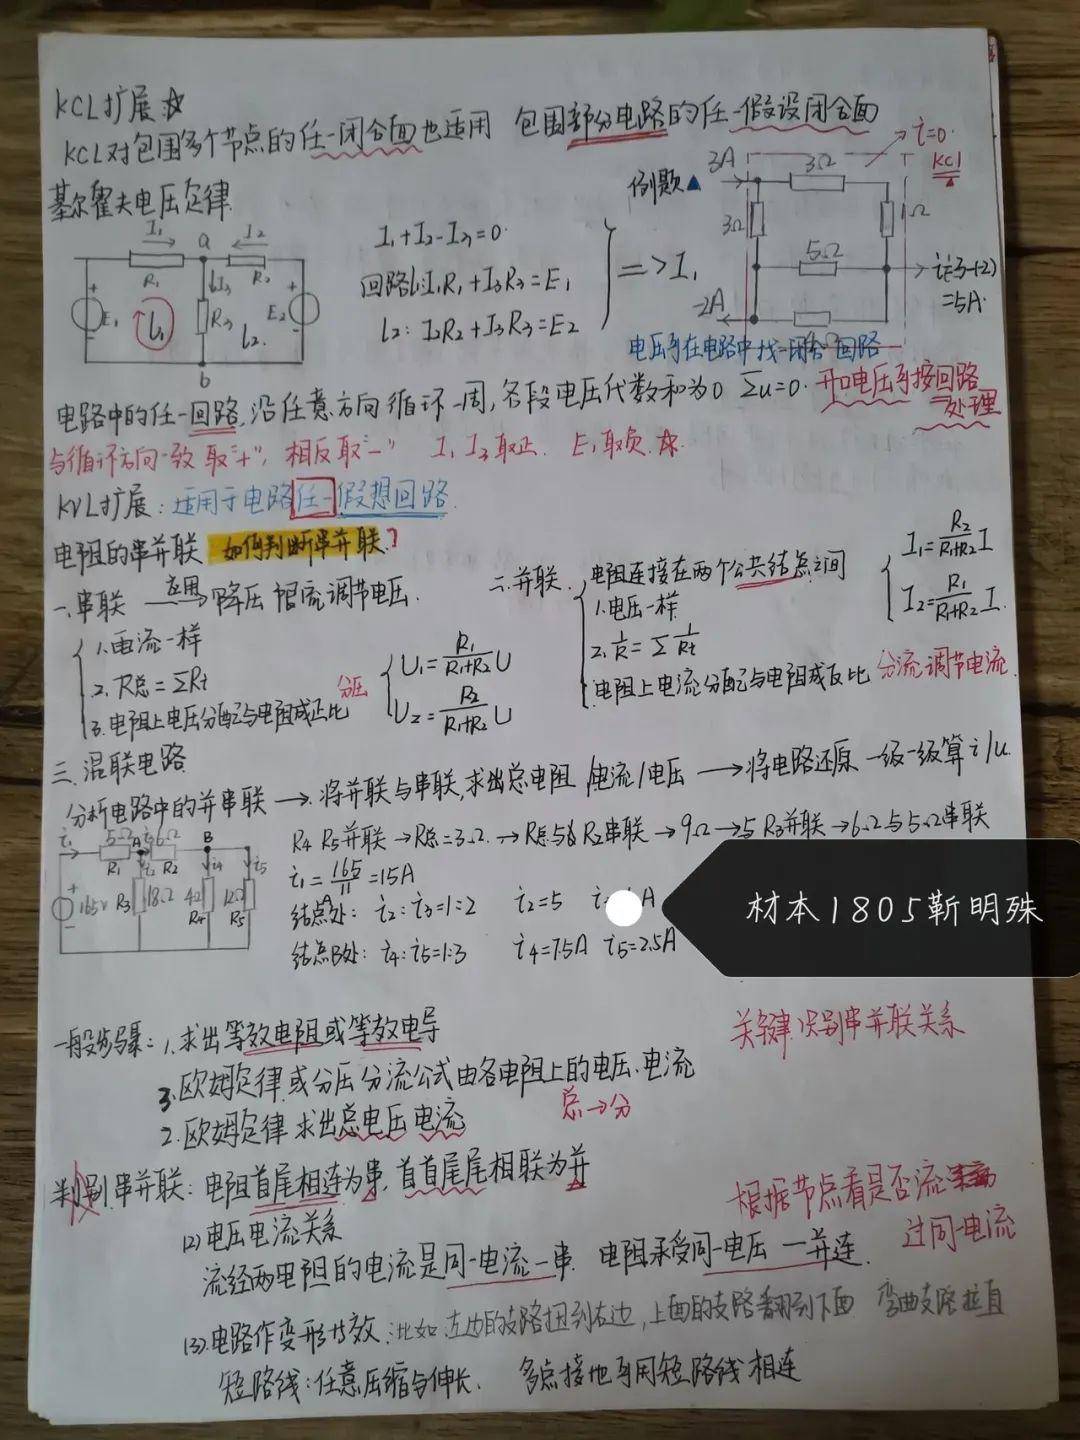 KCL扩展:☆
KCL对包围多个节点的任一闭合面也适用 包围部分电路的任一假设闭合面
i=0.
KCl
基尔霍夫电压定律
例题▲
3A 3Ω
3Ω Ω
5Ω
-2A
i=3-(-2)
=5A.
I₁ a I₂
R₁ I₃ R₂
E₁ l₁ R₃ l₂. E₂
b
I₁+I₂-I₃=0.
回路l₁:I₁R₁+I₃R₃=E₁
l₂: I₂R₂+I₃R₃=E₂
=>I₁
电压可在电路中找一闭合回路
电路中的任一回路,沿任意方向循环一周,各段电压代数和为0 Σu=0. 开口电压可按回路
处理
与循环方向一致取"+",相反取"-" I₁ I₃取正. E₁取负.☆
KVL扩展:适用于电路任一假想回路.
电阻的串并联 如何判断串并联?
一.串联 应用→降压 限流 调节电压.
1.电流一样
2.R总=ΣRt
3.电阻上电压分配与电阻成正比 分压
U₁=R₁/(R₁+R₂)U
U₂=R₂/(R₁+R₂)U
二.并联. 电阻连接在两个公共结点之间
1.电压一样.
2.1/R=Σ1/Rt
电阻上电流分配与电阻成反比 分流 调节电流.
I₁=R₂/(R₁+R₂)I
I₂=R₁/(R₁+R₂)I.
三.混联电路
分析电路中的并串联→将并联与串联,求出总电阻/电流/电压→将电路还原一级一级算i/u.
i₁ 5Ω A i₃ 6Ω B
R₁ i₂ R₂ i₄ i₅
165V R₃ 18Ω 4Ω 12Ω
R₄ R₅
R₄ R₅并联→R总=3Ω.→R总与R₂串联→9Ω→与R₃并联→6Ω与5Ω串联
i₁=165/11=15A
结点A处: i₂:i₃=1:2 i₂=5 i A
结点B处: i₄:i₅=1:3 i₄=7.5A i₅=2.5A
材本1805靳明殊
一般步骤:1.求出等效电阻或等效电导
关键:识别串并联关系
3.欧姆定律或分压分流公式由各电阻上的电压.电流
总→分
2.欧姆定律 求出总电压 电流
判别串并联:电阻首尾相连为串,首首尾尾相联为并
(2)电压电流关系
根据节点看是否流
过同一电流
流经两电阻的电流是同一电流一串. 电阻承受同一电压 一并连.
(3).电路作变形等效:比如左边的支路扭到右边,上面的支路翻到下面 弯曲支路拉直
短路线:任意压缩与伸长. 多点接地可用短路线相连